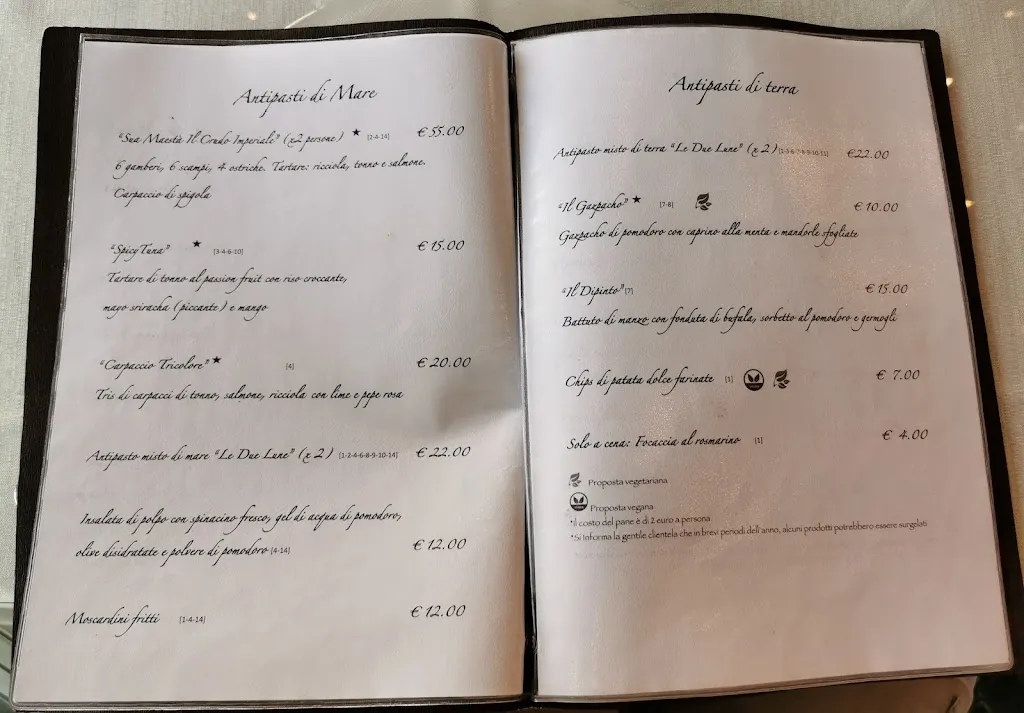 Antipasti di Mare
"Sua Maestà Il Crudo Imperiale" (x2 persone) ★ [2-4-14] € 55.00
6 gamberi, 6 scampi, 4 ostriche. Tartare: ricciola, tonno e salmone.
Carpaccio di spigola
"SpicyTuna" ★ [3-4-6-10] € 15.00
Tartare di tonno al passion fruit con riso croccante,
mayo sriracha (piccante) e mango
"Carpaccio Tricolore" ★ [4] € 20.00
Tris di carpacci di tonno, salmone, ricciola con lime e pepe rosa
Antipasto misto di mare "Le Due Lune" (x 2) [1-2-4-6-8-9-10-14] € 22.00
Insalata di polpo con spinacino fresco, gel di acqua di pomodoro,
olive disidratate e polvere di pomodoro [4-14] € 12.00
Moscardini fritti [1-4-14] € 12.00
Antipasti di terra
Antipasto misto di terra "Le Due Lune" (x 2) €22.00
"Il Gazpacho" ★ [7-8] € 10.00
Gazpacho di pomodoro con caprino alla menta e mandorle sfogliate
"Il Dipinto" [7] € 15.00
Battuto di manzo con fonduta di bufala, sorbetto al pomodoro e germogli
Chips di patata dolce farinate [1] € 7.00
Solo a cena: Focaccia al rosmarino [1] € 4.00
Proposta vegetariana
Proposta vegana
*Il costo del pane è di 2 euro a persona
*Si Informa la gentile clientela che in brevi periodi dell'anno, alcuni prodotti potrebbero essere surgelati